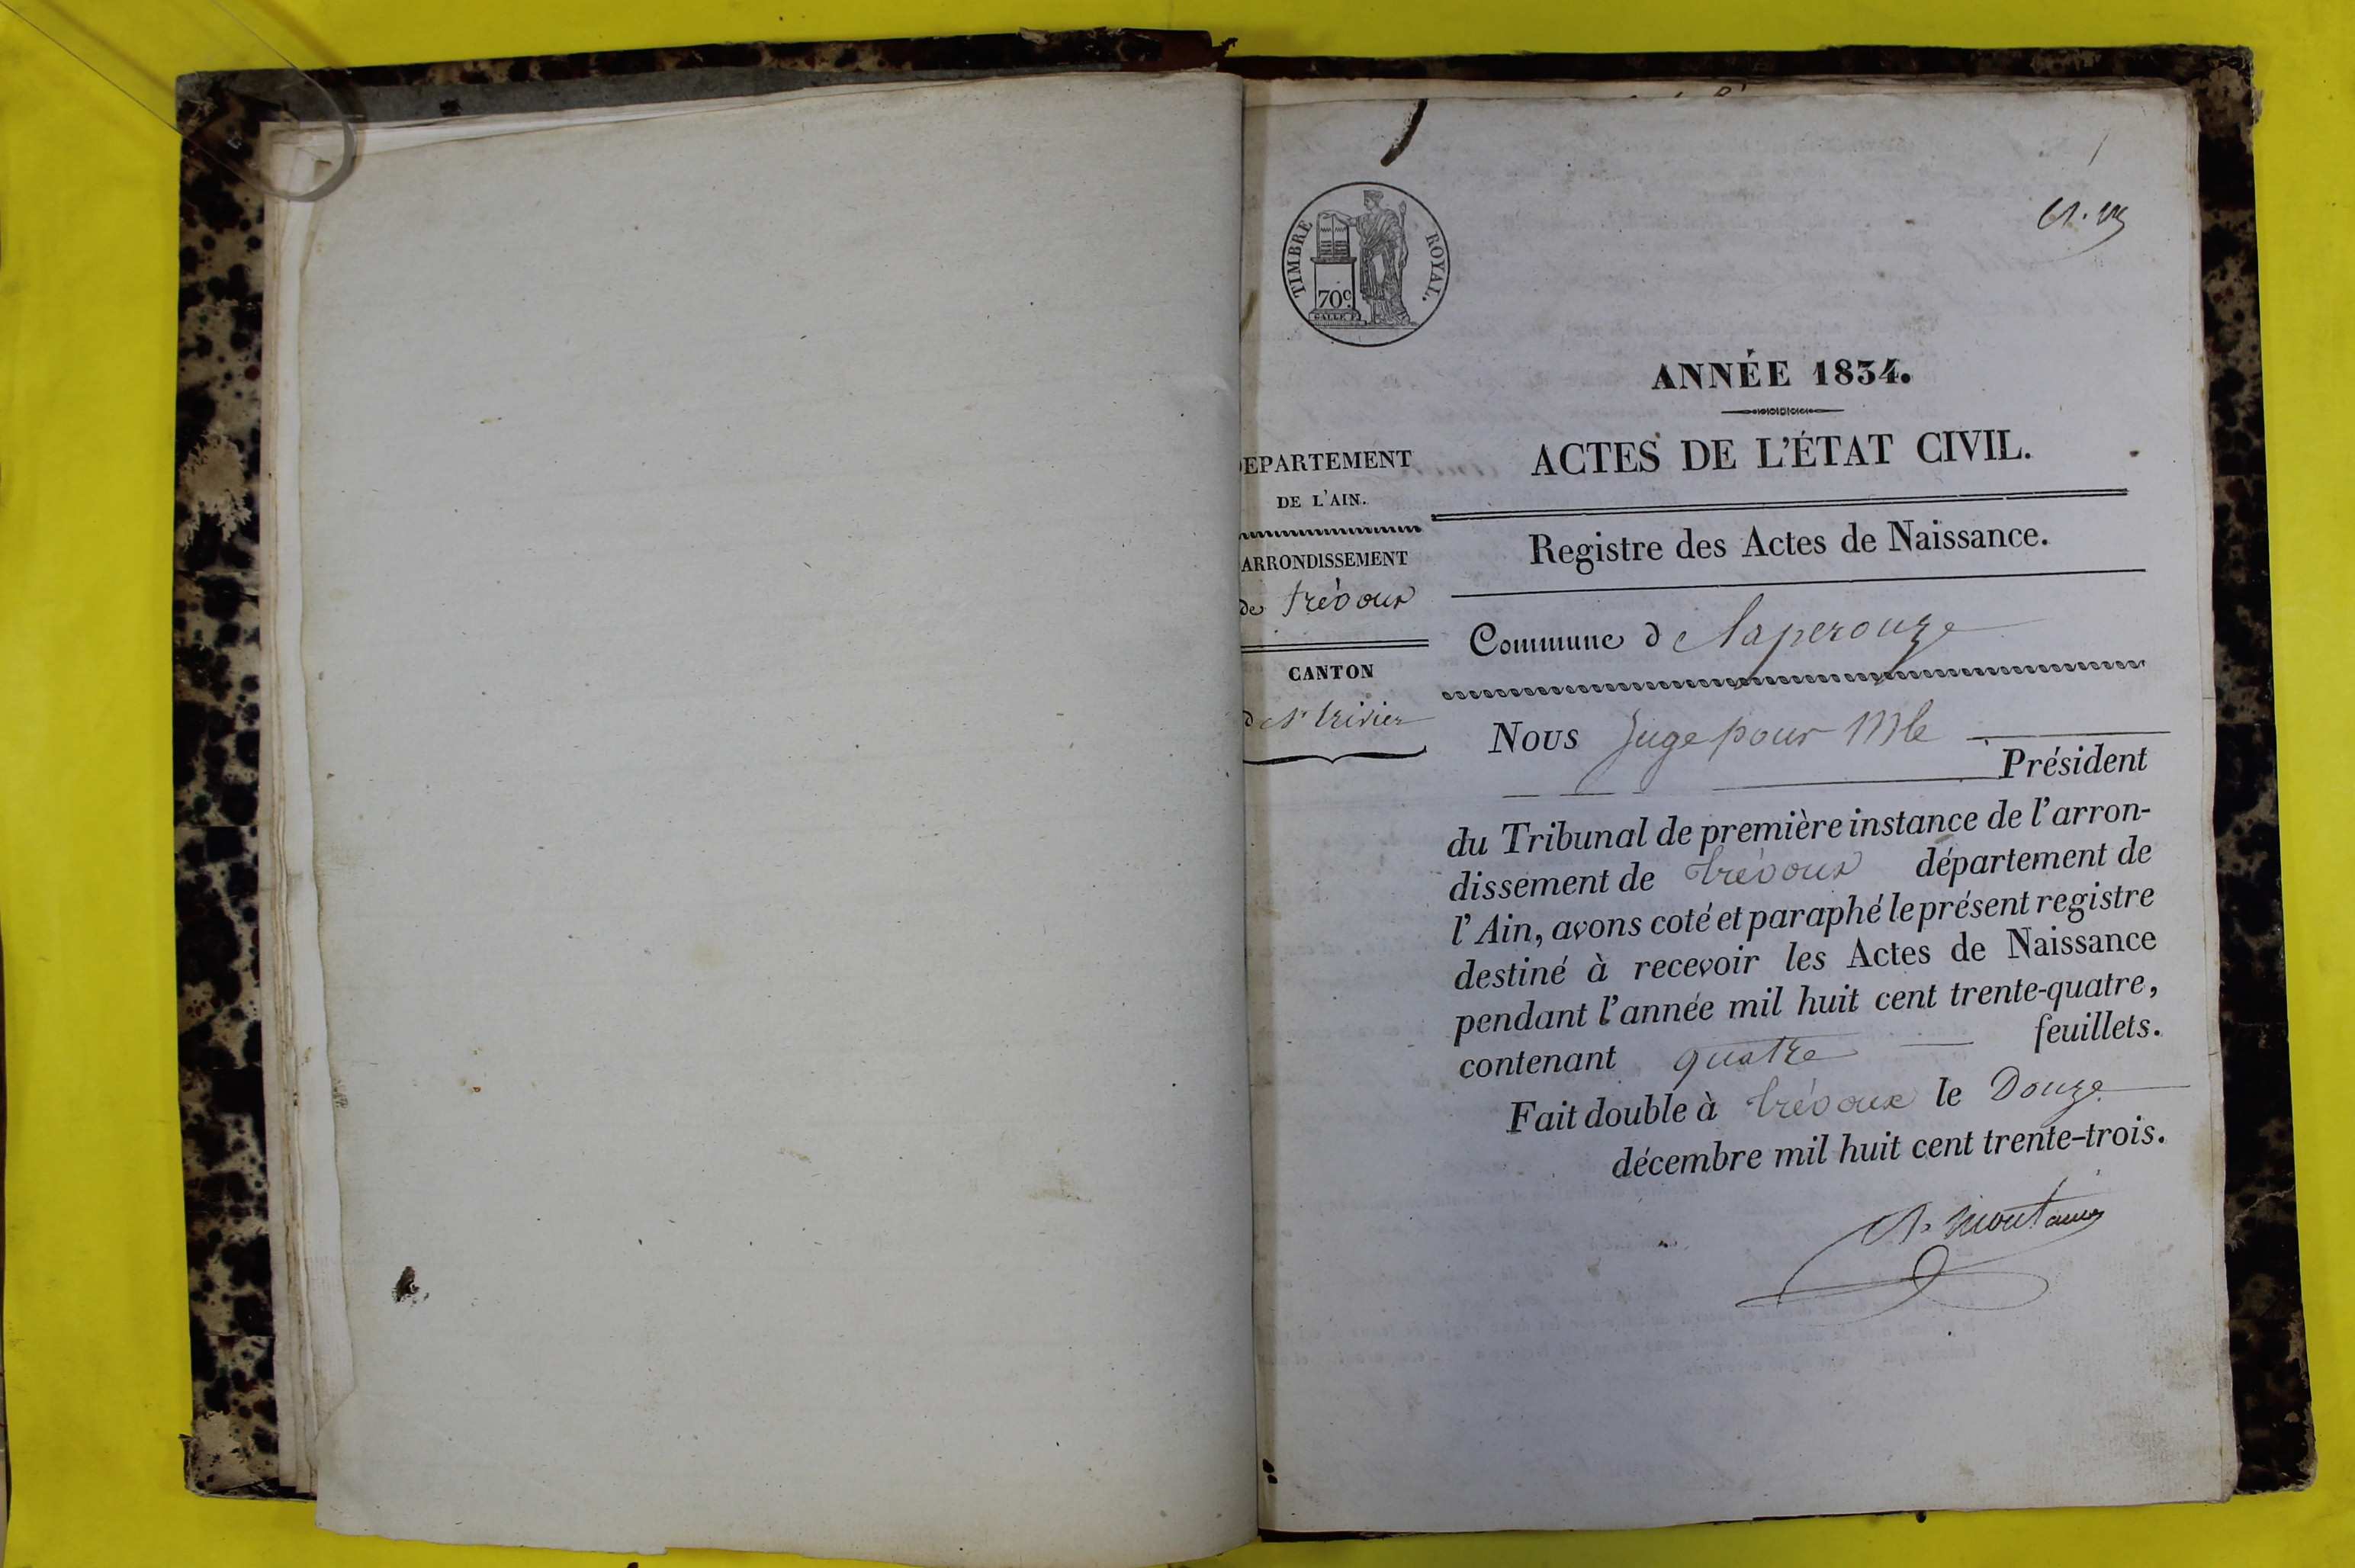 1
TIMBRE ROYAL.
70c
GALLE F.
ANNÉE 1834.
ACTES DE L'ÉTAT CIVIL.
EPARTEMENT
DE L'AIN.
Registre des Actes de Naissance.
ARRONDISSEMENT
de trévoux
Commune de Laperouze
CANTON
de St trivier
Nous Juge pour Mr le
Président
du Tribunal de première instance de l'arron-
dissement de trévoux département de
l'Ain, avons coté et paraphé le présent registre
destiné à recevoir les Actes de Naissance
pendant l'année mil huit cent trente-quatre,
contenant quatre feuillets.
Fait double à trévoux le Douze
décembre mil huit cent trente-trois.